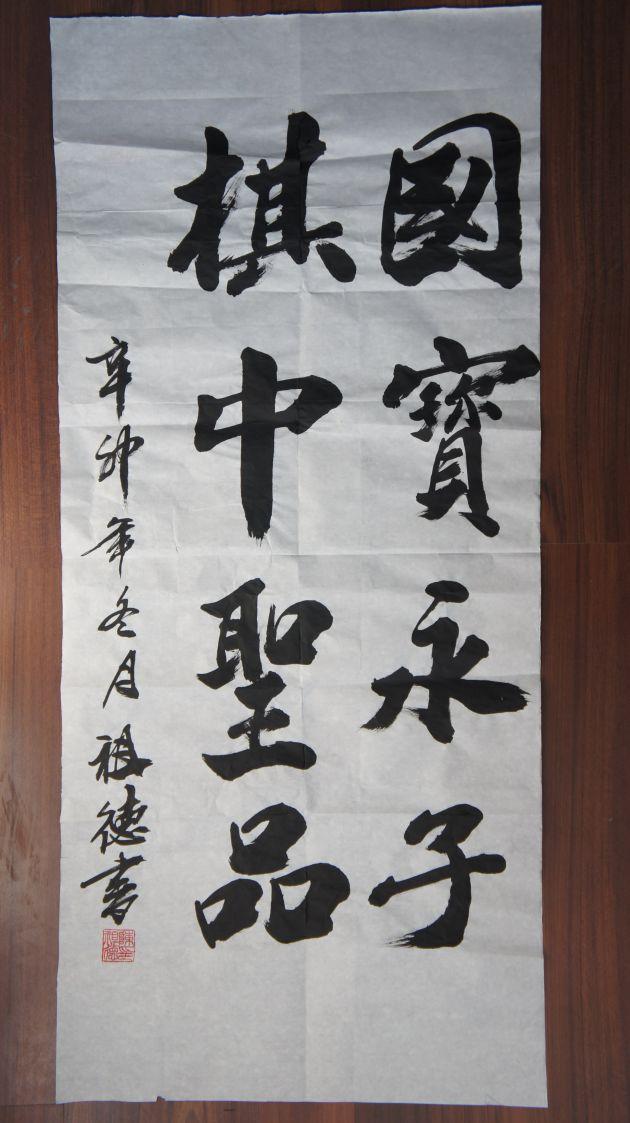 國寶永子
棋中聖品
辛卯年冬月祖德書